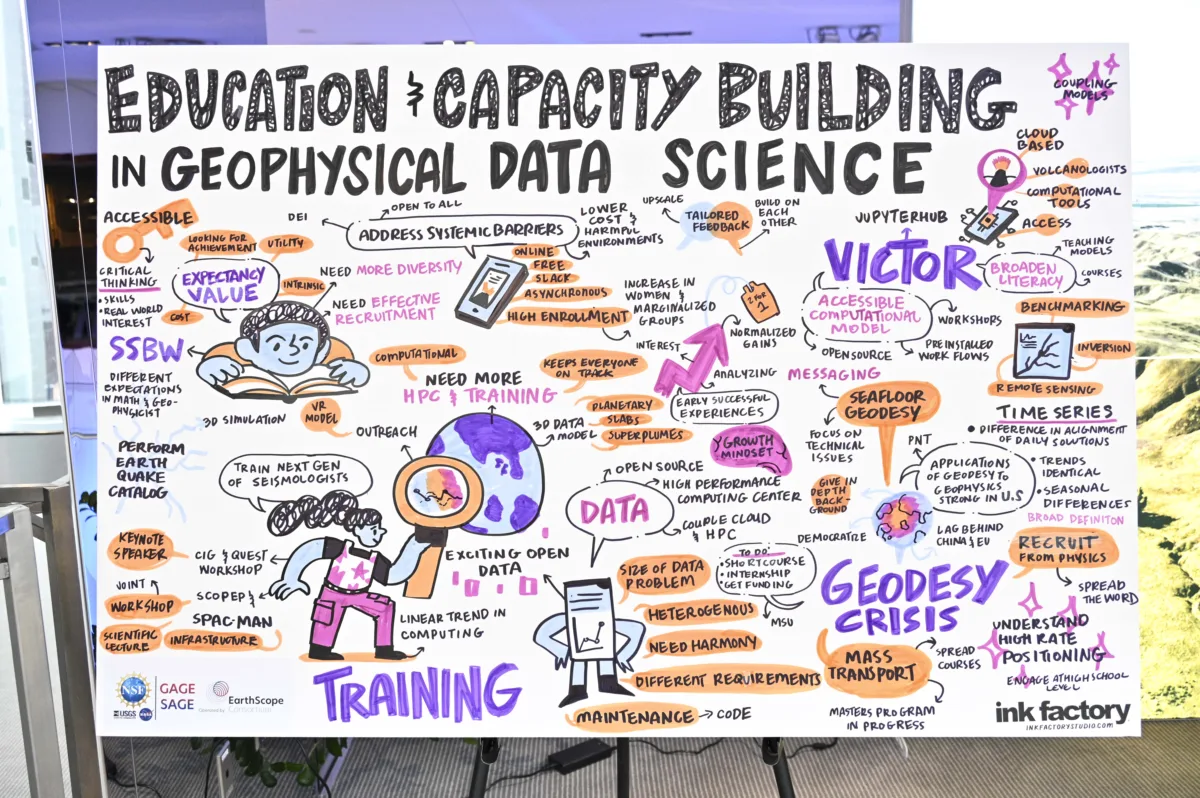 EDUCATION & CAPACITY BUILDING
IN GEOPHYSICAL DATA SCIENCE
COUPLING
MODELS
CLOUD
BASED
VOLCANOLOGISTS
COMPUTATIONAL
TOOLS
ACCESS
JUPYTERHUB
VICTOR
BROADEN
LITERACY
TEACHING
MODELS
COURSES
ACCESSIBLE
COMPUTATIONAL
MODEL
WORKSHOPS
OPEN SOURCE
PREINSTALLED
WORK FLOWS
BENCHMARKING
INVERSION
REMOTE SENSING
ACCESSIBLE
CRITICAL
THINKING
• SKILLS
• REAL WORLD
INTEREST
LOOKING FOR
ACHIEVEMENT
UTILITY
EXPECTANCY
VALUE
INTRINSIC
COST
SSBW
DIFFERENT
EXPECTATIONS
IN MATH & GEO-
PHYSICIST
DEI
OPEN TO ALL
ADDRESS SYSTEMIC BARRIERS
LOWER
COST &
HARMFUL
ENVIRONMENTS
NEED MORE DIVERSITY
NEED EFFECTIVE
RECRUITMENT
ONLINE
FREE
SLACK
ASYNCHRONOUS
HIGH ENROLLMENT
UPSCALE
TAILORED
FEEDBACK
BUILD ON
EACH
OTHER
INCREASE IN
WOMEN &
MARGINALIZED
GROUPS
INTEREST
2 FOR
1
NORMALIZED
GAINS
ANALYZING
EARLY SUCCESSFUL
EXPERIENCES
GROWTH
MINDSET
COMPUTATIONAL
NEED MORE
HPC & TRAINING
KEEPS EVERYONE
ON TRACK
PLANETARY
SLABS
SUPERPLUMES
3D DATA
MODEL
3D SIMULATION
VR
MODEL
OUTREACH
PERFORM
EARTH
QUAKE
CATALOG
TRAIN NEXT GEN
OF SEISMOLOGISTS
KEYNOTE
SPEAKER
CIG & QUEST
WORKSHOP
JOINT
WORKSHOP
SCOPED &
SPAC-MAN
SCIENTIFIC
LECTURE
INFRASTRUCTURE
EXCITING OPEN
DATA
LINEAR TREND IN
COMPUTING
TRAINING
DATA
OPEN SOURCE
HIGH PERFORMANCE
COMPUTING CENTER
COUPLE CLOUD
& HPC
TO DO:
• SHORT COURSE
• INTERNSHIP
GET FUNDING
MSU
SIZE OF DATA
PROBLEM
HETEROGENOUS
NEED HARMONY
DIFFERENT REQUIREMENTS
MAINTENANCE
CODE
MESSAGING
SEAFLOOR
GEODESY
FOCUS ON
TECHNICAL
ISSUES
GIVE IN
DEPTH
BACK-
GROUND
DEMOCRATIZE
PNT
APPLICATIONS
OF GEODESY TO
GEOPHYSICS
STRONG IN U.S
LAG BEHIND
CHINA & EU
TIME SERIES
• DIFFERENCE IN ALIGNMENT
OF DAILY SOLUTIONS
• TRENDS
IDENTICAL
• SEASONAL
DIFFERENCES
BROAD DEFINITON
RECRUIT
FROM PHYSICS
SPREAD
THE WORD
GEODESY
CRISIS
MASS
TRANSPORT
SPREAD
COURSES
MASTERS PROGRAM
IN PROGRESS
UNDERSTAND
HIGH RATE
POSITIONING
ENGAGE AT HIGH SCHOOL
LEVEL
NSF
USGS
NASA
GAGE
SAGE
EarthScope
Operated by
Consortium
ink factory
INKFACTORYSTUDIO.COM